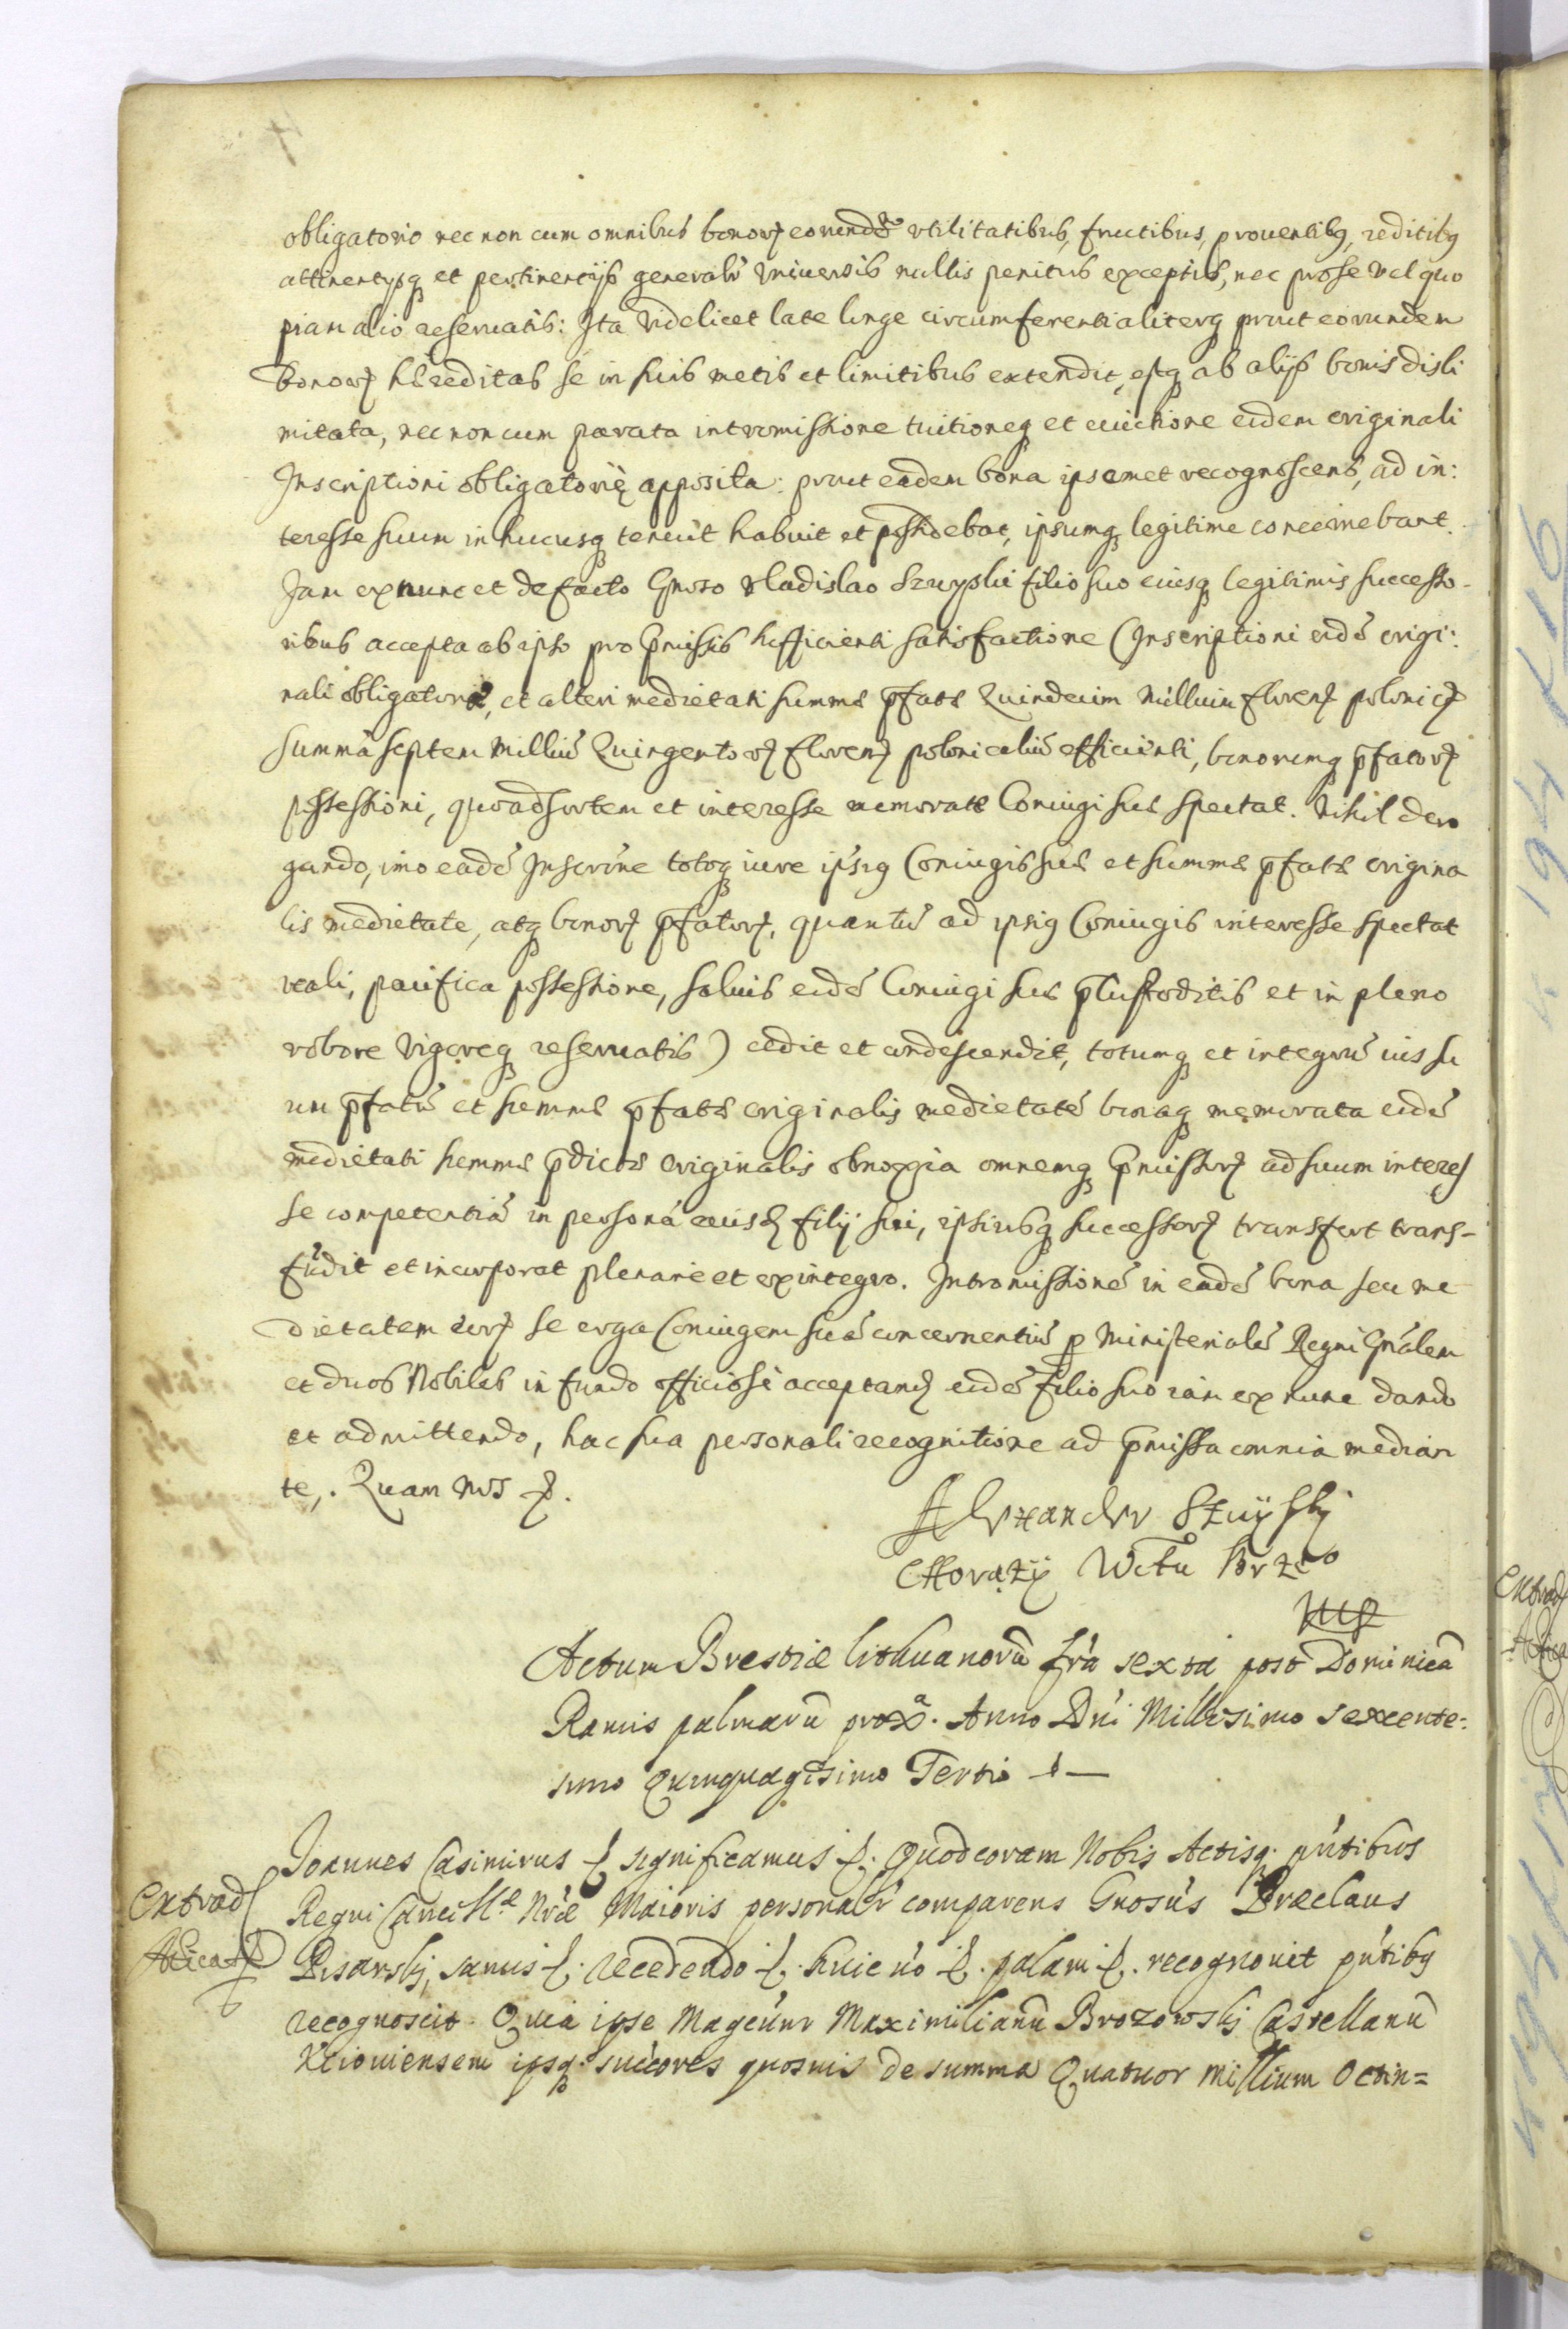 obligatorio nec non cum omnibus bonorꝝ eorundẽ vtilitatibus, fructibus, prouentibꝫ, reditibꝫ
attinentijsqꝫ et pertinentijs generalr̃ vniuersis nullis penitus exceptis, nec pro se vel quo
piam alio reseruatis: Ita videlicet late longe circumferentialiterqꝫ prout eorundem
bonorꝝ hæreditas se in suis metis et limitibus extendit, estqꝫ ab alijs bonis disli
mitata, nec non cum parata intromissione tuitioneqꝫ et euictione eidem originali
Inscriptioni obligatoriæ apposita: prout eadem bona ipsemet recognoscens, ad in:
teresse suum in hucusqꝫ tenuit habuit et possidebat, ipsumqꝫ legitime concernebant.
Jam ex nunc et de facto Gnroso Vladislao Szuyski filio suo eiusqꝫ legitimis successo-
ribus accepta ab ipso pro p̃missis sufficienti satisfactione (Inscriptioni eidẽ origi:
nali obligatoriæ, et alteri medietati summæ p̃fatæ Quindecim Millium florenꝝ polonicꝝ
summã septem Milliũ Quingentorꝝ florenꝝ polonicaliũ efficienti, bonorumqꝫ p̃fatorꝝ
possessioni, quo ad sortem et interesse memoratæ Coniugi suæ spectat. Nihil dero
gando, imo eadẽ Inscrõne totoqꝫ iure ipsiꝰ Coniugis suæ et summæ p̃fatæ origina
lis medietate, atqꝫ bonorꝝ p̃fatorꝝ, quantũ ad ipsiꝰ Coniugis interesse spectat
reali, pacifica possessione, saluis eidẽ Coniugi suæ p̃custoditis et in pleno
robore vigoreqꝫ reseruatis) cedit et condescendit, totumqꝫ et integrũ ius su
um p̃fatũ et summæ p̃fatæ originalis medietatẽ bonaqꝫ memorata eidẽ
medietati summæ p̃dictæ originalis obnoxia omnemqꝫ p̃missorꝝ ad suum interes
se competentiã in personã eiusdꝫ filij sui, ipsiusqꝫ successorꝝ transfert trans-
fũdit et incorporat plenarie et ex integro. Intromissionẽ in eadẽ bona seu me
dietatem eorꝝ se erga Coniugem suã concernentiũ p Ministerialẽ Regni Gñalem
et duos Nobiles in fundo officiose acceptandꝫ eidẽ filio suo iam ex nunc dando
et admittendo, hac sua personali recognitione ad p̃missa omnia median
te,. Quam nos ꝝ.
Alexander Szuyski
Chorąży Wctũ Brze°
mp
Actum Brestiæ Lithuanorũ fr̃a sexta post Dominicã
Ramis palmarũ proxª. Anno Dñi Millesimo sexcente:
simo Quinquagesimo Tertio
Joannes Casimirus ꝝ significamus ꝝ. Quod coram Nobis Actisqꝫ pñtibus
Extrad
Regni Cancellæ Nr̃æ Maioris personalr̃ comparens Gnosus Præclaus
Pisarskj, sanus ꝝ. recedendo ꝝ. huic ño ꝝ. palam ꝝ. recognouit pñtibꝫ
recognoscit. Quia ipse Magcum Maximilianũ Brozowskj Castellanũ
Kiiouiensem ipsqꝫ succores quosuis de summa Quatuor Millium Octin=